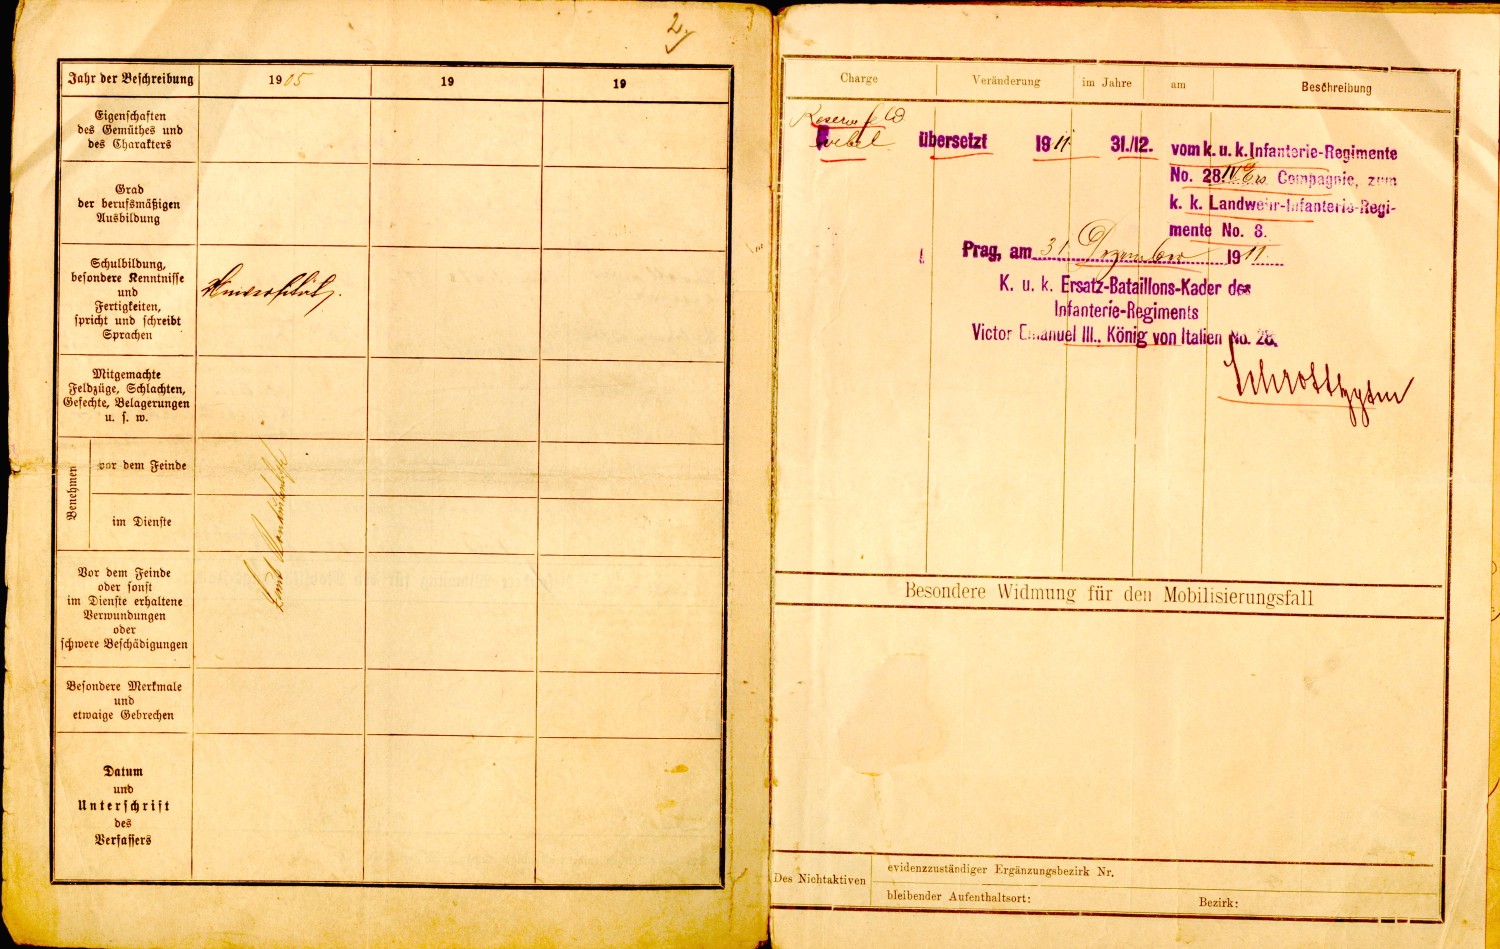 2.
Jahr der Beschreibung
1905
19
19
Eigenschaften
des Gemüthes und
des Charakters
Grad
der berufsmäßigen
Ausbildung
Schulbildung,
besondere Kenntnisse
und
Fertigkeiten,
spricht und schreibt
Sprachen
Mitgemachte
Feldzüge, Schlachten,
Gefechte, Belagerungen
u. s. w.
Benehmen
vor dem Feinde
im Dienste
Vor dem Feinde
oder sonst
im Dienste erhaltene
Verwundungen
oder
schwere Beschädigungen
Besondere Merkmale
und
etwaige Gebrechen
Datum
und
Unterschrift
des
Verfassers
Charge
Veränderung
im Jahre
am
Beschreibung
übersetzt 1911 31./12. vom k. u. k. Infanterie-Regimente
No. 28 Compagnie, zum
k. k. Landwehr-Infanterie-Regi-
mente No. 8.
Prag, am 31 Dezember 1911.
K. u. k. Ersatz-Bataillons-Kader des
Infanterie-Regiments
Victor Emanuel III., König von Italien No. 28.
Besondere Widmung für den Mobilisierungsfall
Des Nichtaktiven
evidenzzuständiger Ergänzungsbezirk Nr.
bleibender Aufenthaltsort:
Bezirk: